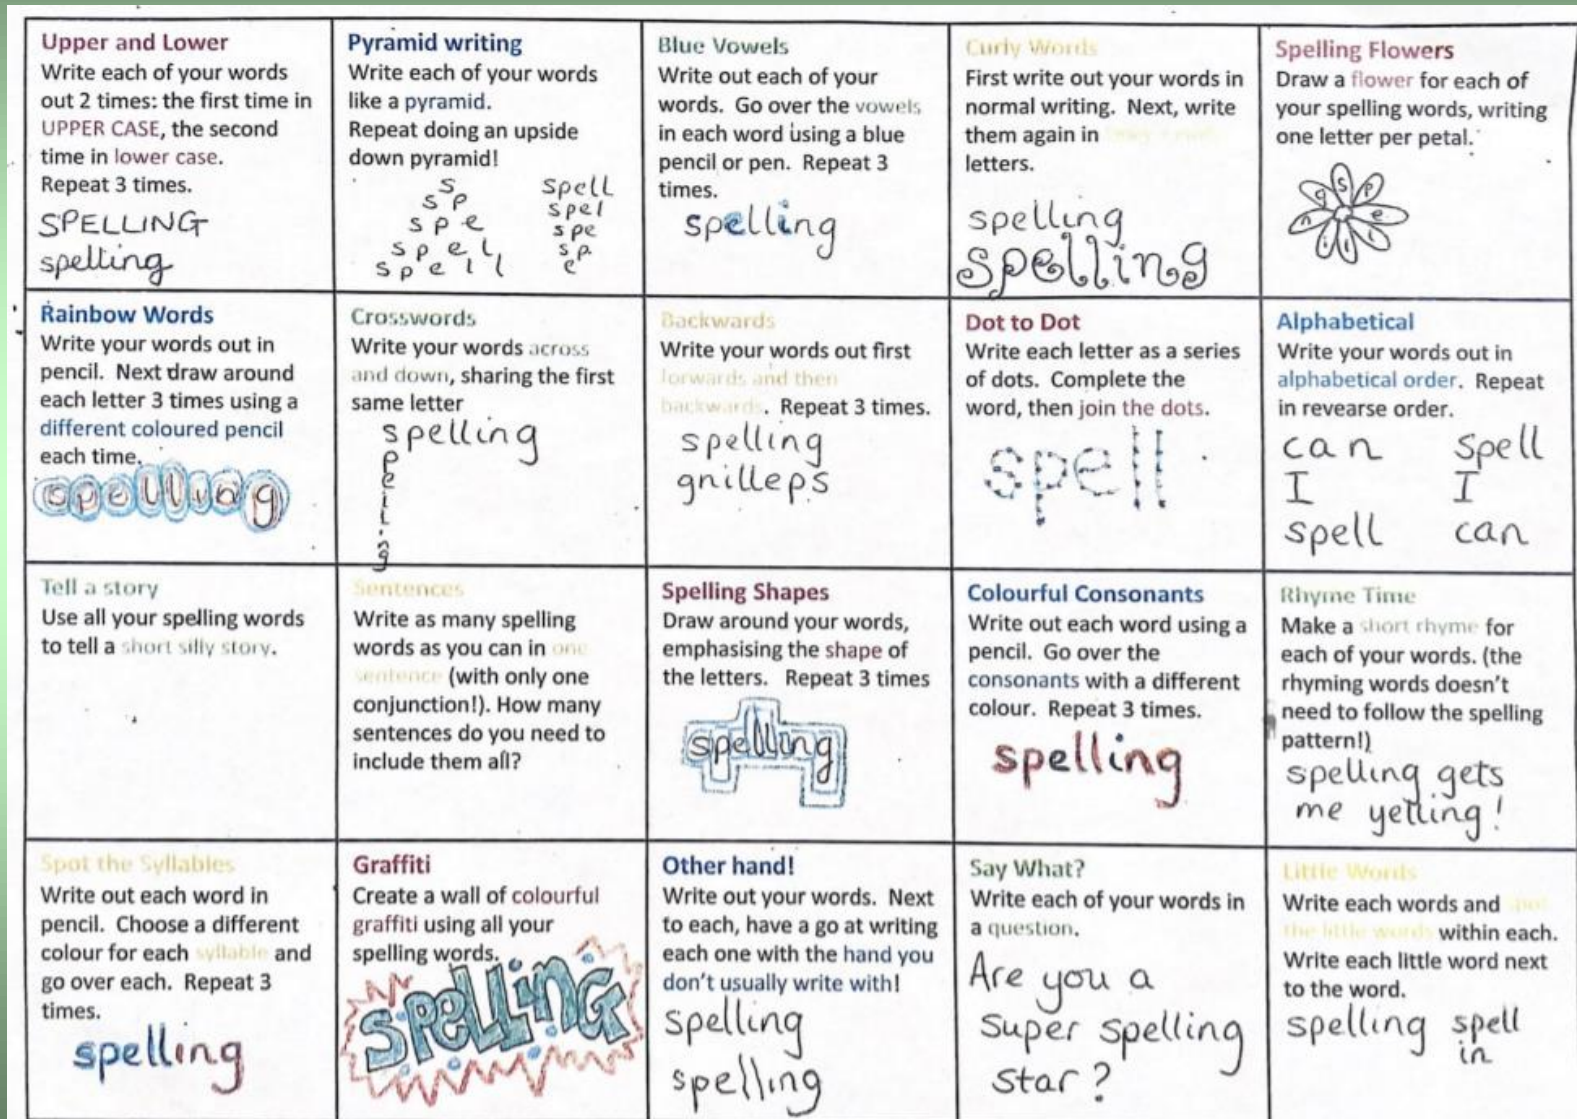 Upper and Lower
Write each of your words
out 2 times: the first time in
UPPER CASE, the second
time in lower case.
Repeat 3 times.
SPELLING
spelling
Pyramid writing
Write each of your words
like a pyramid.
Repeat doing an upside
down pyramid!
s
s p
s p e
s p e l
s p e l l
spell
spel
spe
sp
Blue Vowels
Write out each of your
words. Go over the vowels
in each word using a blue
pencil or pen. Repeat 3
times.
spelling
Curly Words
First write out your words in
normal writing. Next, write
them again in
letters.
spelling
spelling
Spelling Flowers
Draw a flower for each of
your spelling words, writing
one letter per petal.
Rainbow Words
Write your words out in
pencil. Next draw around
each letter 3 times using a
different coloured pencil
each time.
spelling
Crosswords
Write your words across
and down, sharing the first
same letter
spelling
p
e
l
l
i
n
g
Backwards
Write your words out first
forwards and then
backwards. Repeat 3 times.
spelling
gnilleps
Dot to Dot
Write each letter as a series
of dots. Complete the
word, then join the dots.
spell
Alphabetical
Write your words out in
alphabetical order. Repeat
in revearse order.
can
I
spell
spell
I
can
Tell a story
Use all your spelling words
to tell a short silly story.
Sentences
Write as many spelling
words as you can in one
sentence (with only one
conjunction!). How many
sentences do you need to
include them all?
Spelling Shapes
Draw around your words,
emphasising the shape of
the letters. Repeat 3 times
spelling
Colourful Consonants
Write out each word using a
pencil. Go over the
consonants with a different
colour. Repeat 3 times.
spelling
Rhyme Time
Make a short rhyme for
each of your words. (the
rhyming words doesn't
need to follow the spelling
pattern!)
spelling gets
me yelling!
Spot the Syllables
Write out each word in
pencil. Choose a different
colour for each syllable and
go over each. Repeat 3
times.
spelling
Graffiti
Create a wall of colourful
graffiti using all your
spelling words.
SPELLING
Other hand!
Write out your words. Next
to each, have a go at writing
each one with the hand you
don't usually write with!
spelling
spelling
Say What?
Write each of your words in
a question.
Are you a
super spelling
star?
Little Words
Write each words and spot
the little words within each.
Write each little word next
to the word.
spelling spell
in